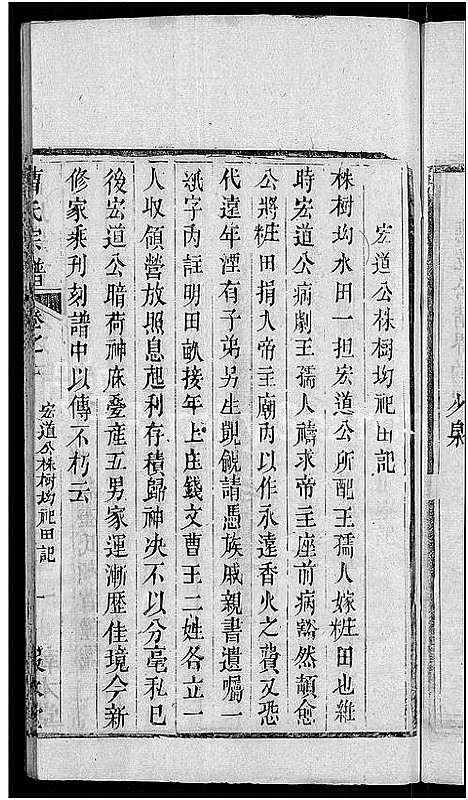 宏道公株樹均祀田記
株樹均水田一担宏道公所配王孺人嫁粧田也維
時宏道公病劇王孺人禱求帝主座前病豁然頓愈
公將粧田捐入帝主廟內以作永遠香火之費又恐
代遠年湮有子弟另生凱覦請憑族戚親書遺囑一
紙字內註明田畝接年上庄錢文曹王二姓各立一
人收領營放照息起利存積歸神决不以分毫私已
後宏道公暗荷神庥叠産五男家運漸歷佳境今新
修家乘刋刻譜中以傳不朽云
曹氏宗譜
卷之
宏道公株樹均祀田記
一